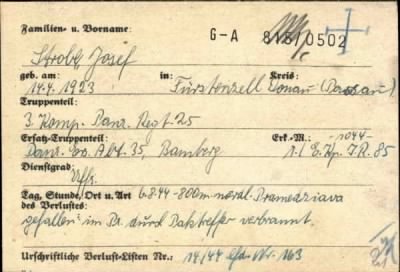 Familien- u. Vorname:
G-A 818/0502
Strobl Josef
geb. am: in: Kreis:
14.4.1923 Fürstenzell Donau (Passau)
Truppenteil:
3. Komp. Panz. Regt. 25
Ersatz-Truppenteil: Erk.-M.: -1044-
Panz. Ers. Abt. 35, Bamberg 1./E.Kp. I.R. 85
Dienstgrad:
Uffz.
Tag, Stunde, Ort u. Art 6.8.44 - 800m nordl. Pramedziava
des Verlustes:
"gefallen" im Pz. durch Paktreffer verbrannt.
Urschriftliche Verlust-Listen Nr.: 14/44 lfd. Nr. 163